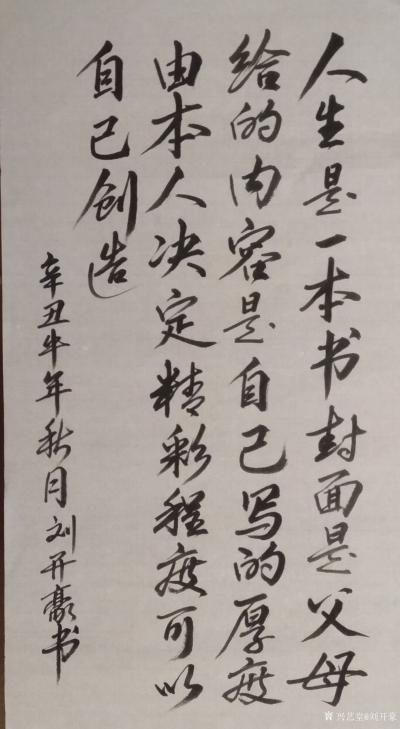 人生是一本书封面是父母
给的内容是自己写的厚度
由本人决定精彩程度可以
自己创造
辛丑牛年秋月刘开豪书
兴艺堂@刘开豪